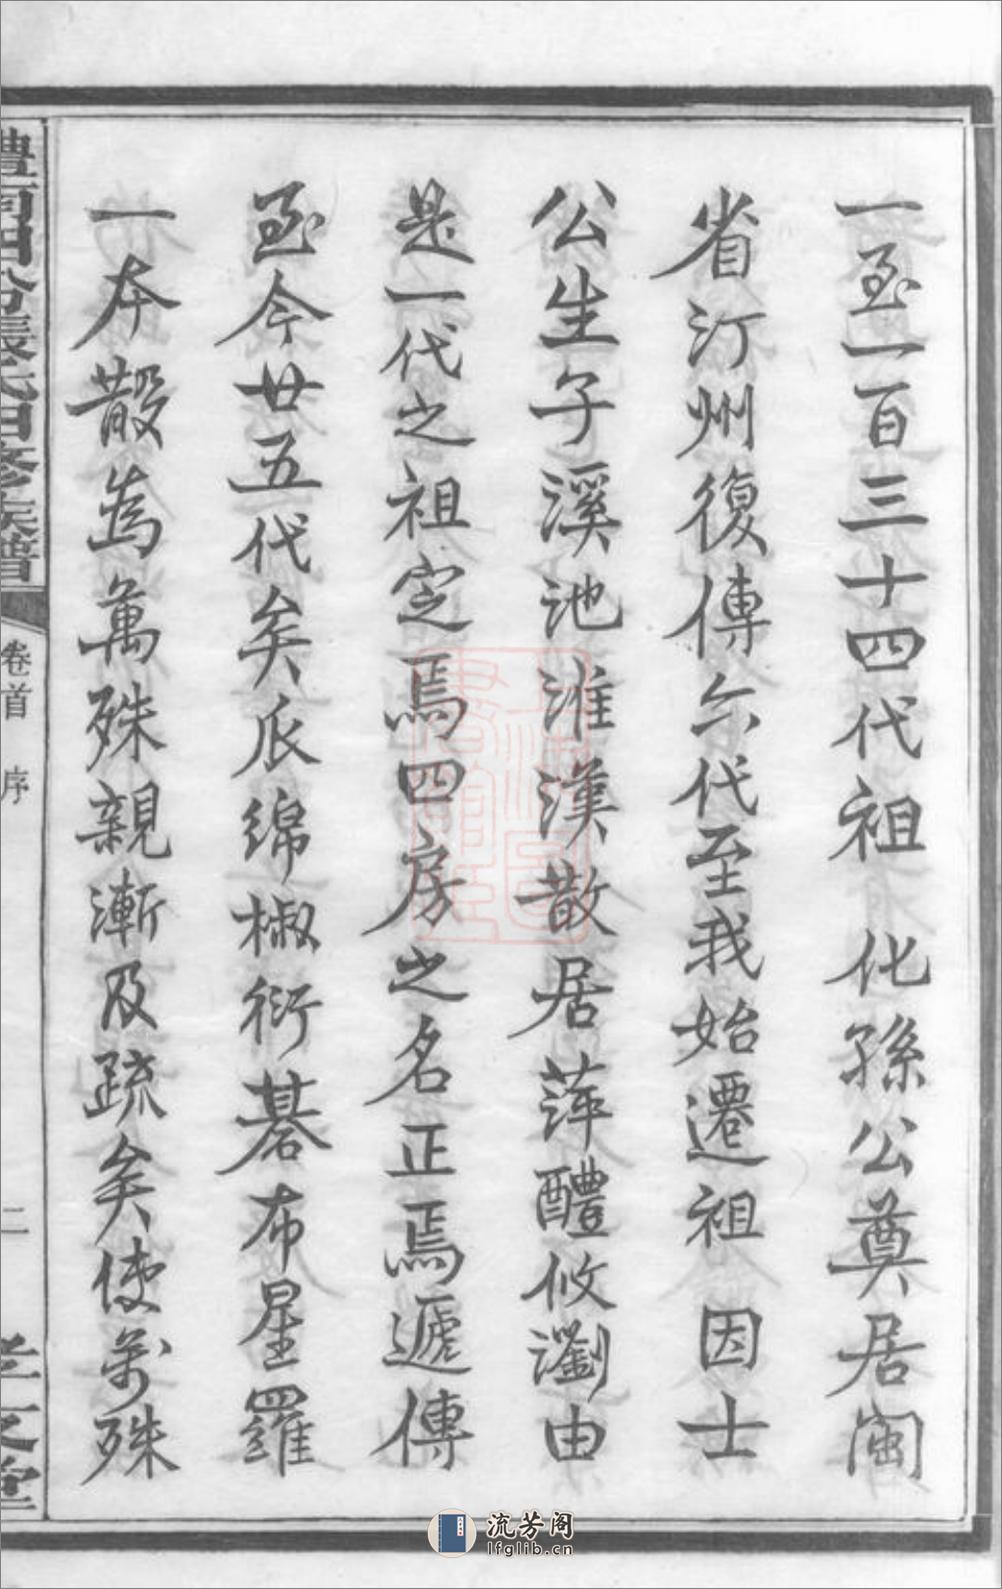 一至一百三十四代祖　化孫公奠居閩
省汀州復傳六代至我始遷祖　因士
公生子溪池淮漢散居萍醴攸瀏由
是一代之祖定焉四房之名正焉遞傳
至今廿五代矣𠂢綿椒衍碁布星羅
一本散為萬殊親漸及疏矣使萬殊
醴南田心張氏四修族譜
卷首　序
二
孝友堂
流芳阁
lfglib.cn